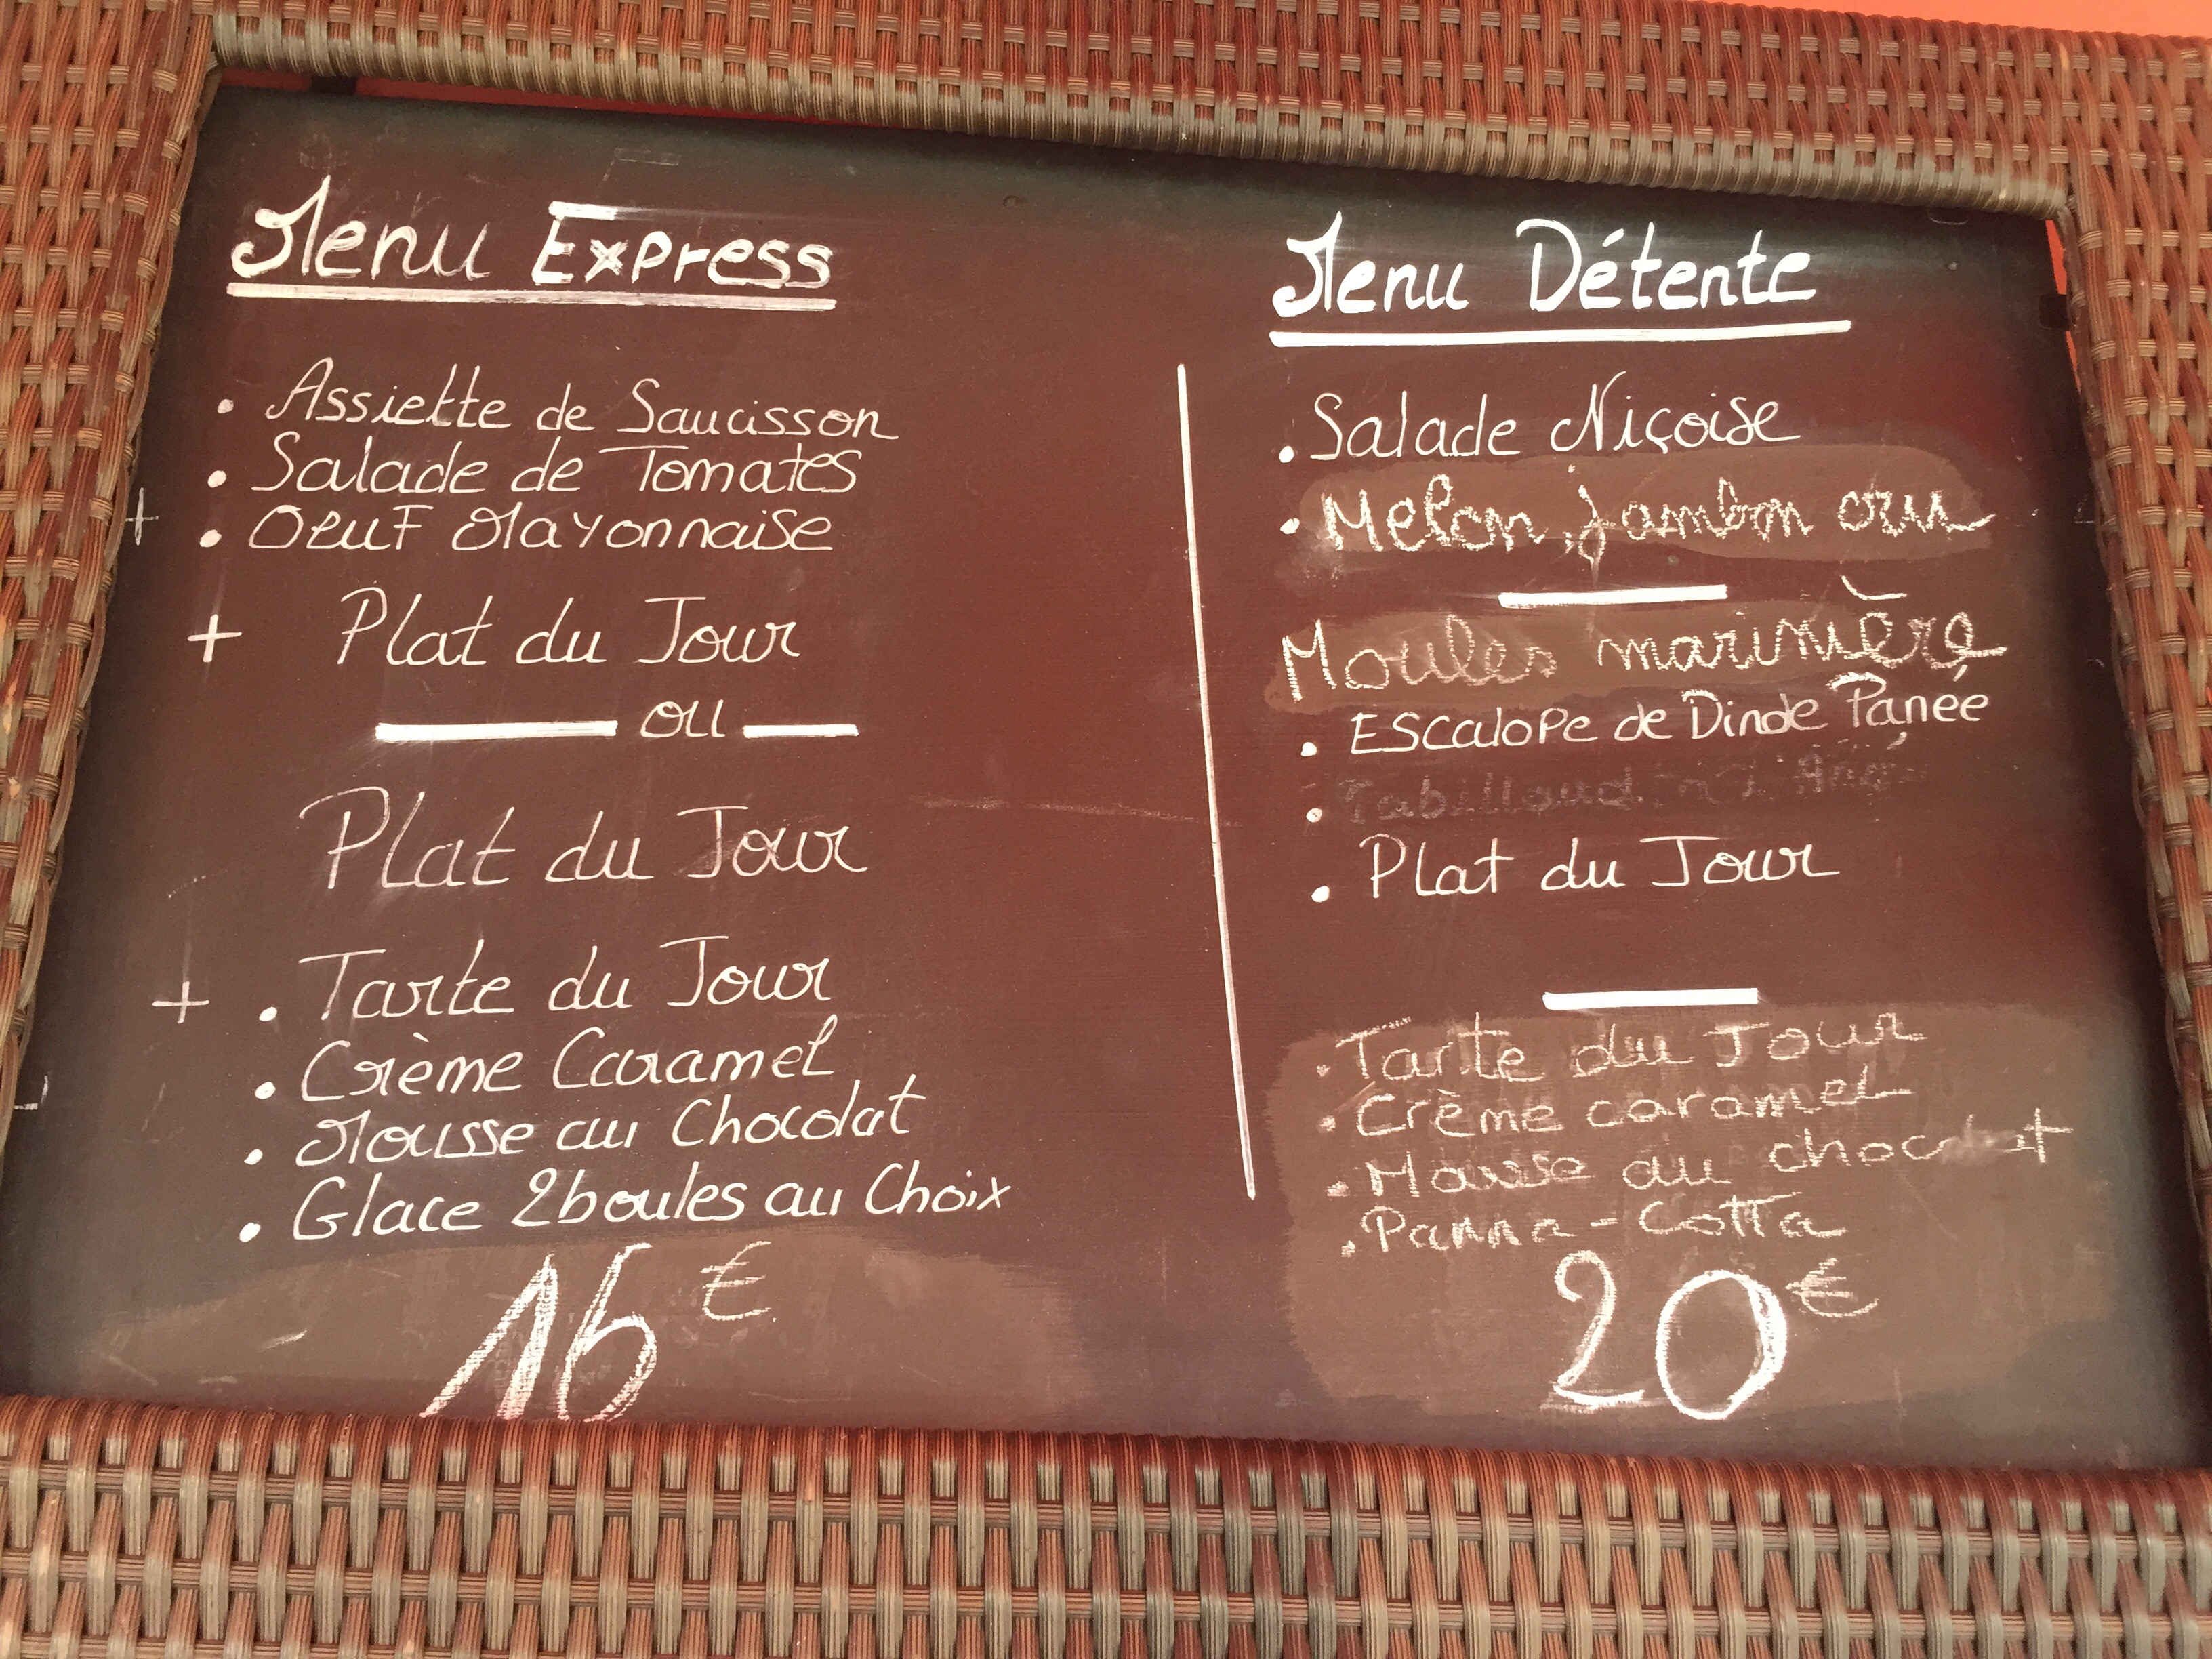 Menu Express
• Assiette de Saucisson
• Salade de Tomates
• Oeuf Mayonnaise
+ Plat du Jour
ou
Plat du Jour
+ • Tarte du Jour
• Crème Caramel
• Mousse au Chocolat
• Glace 2 boules au Choix
16 €
Menu Détente
• Salade Niçoise
• Melon, jambon cru
Moules marinière
• Escalope de Dinde Panée
•
• Plat du Jour
• Tarte du Jour
• Crème caramel
• Mousse au chocolat
• Panna-Cotta
20 €